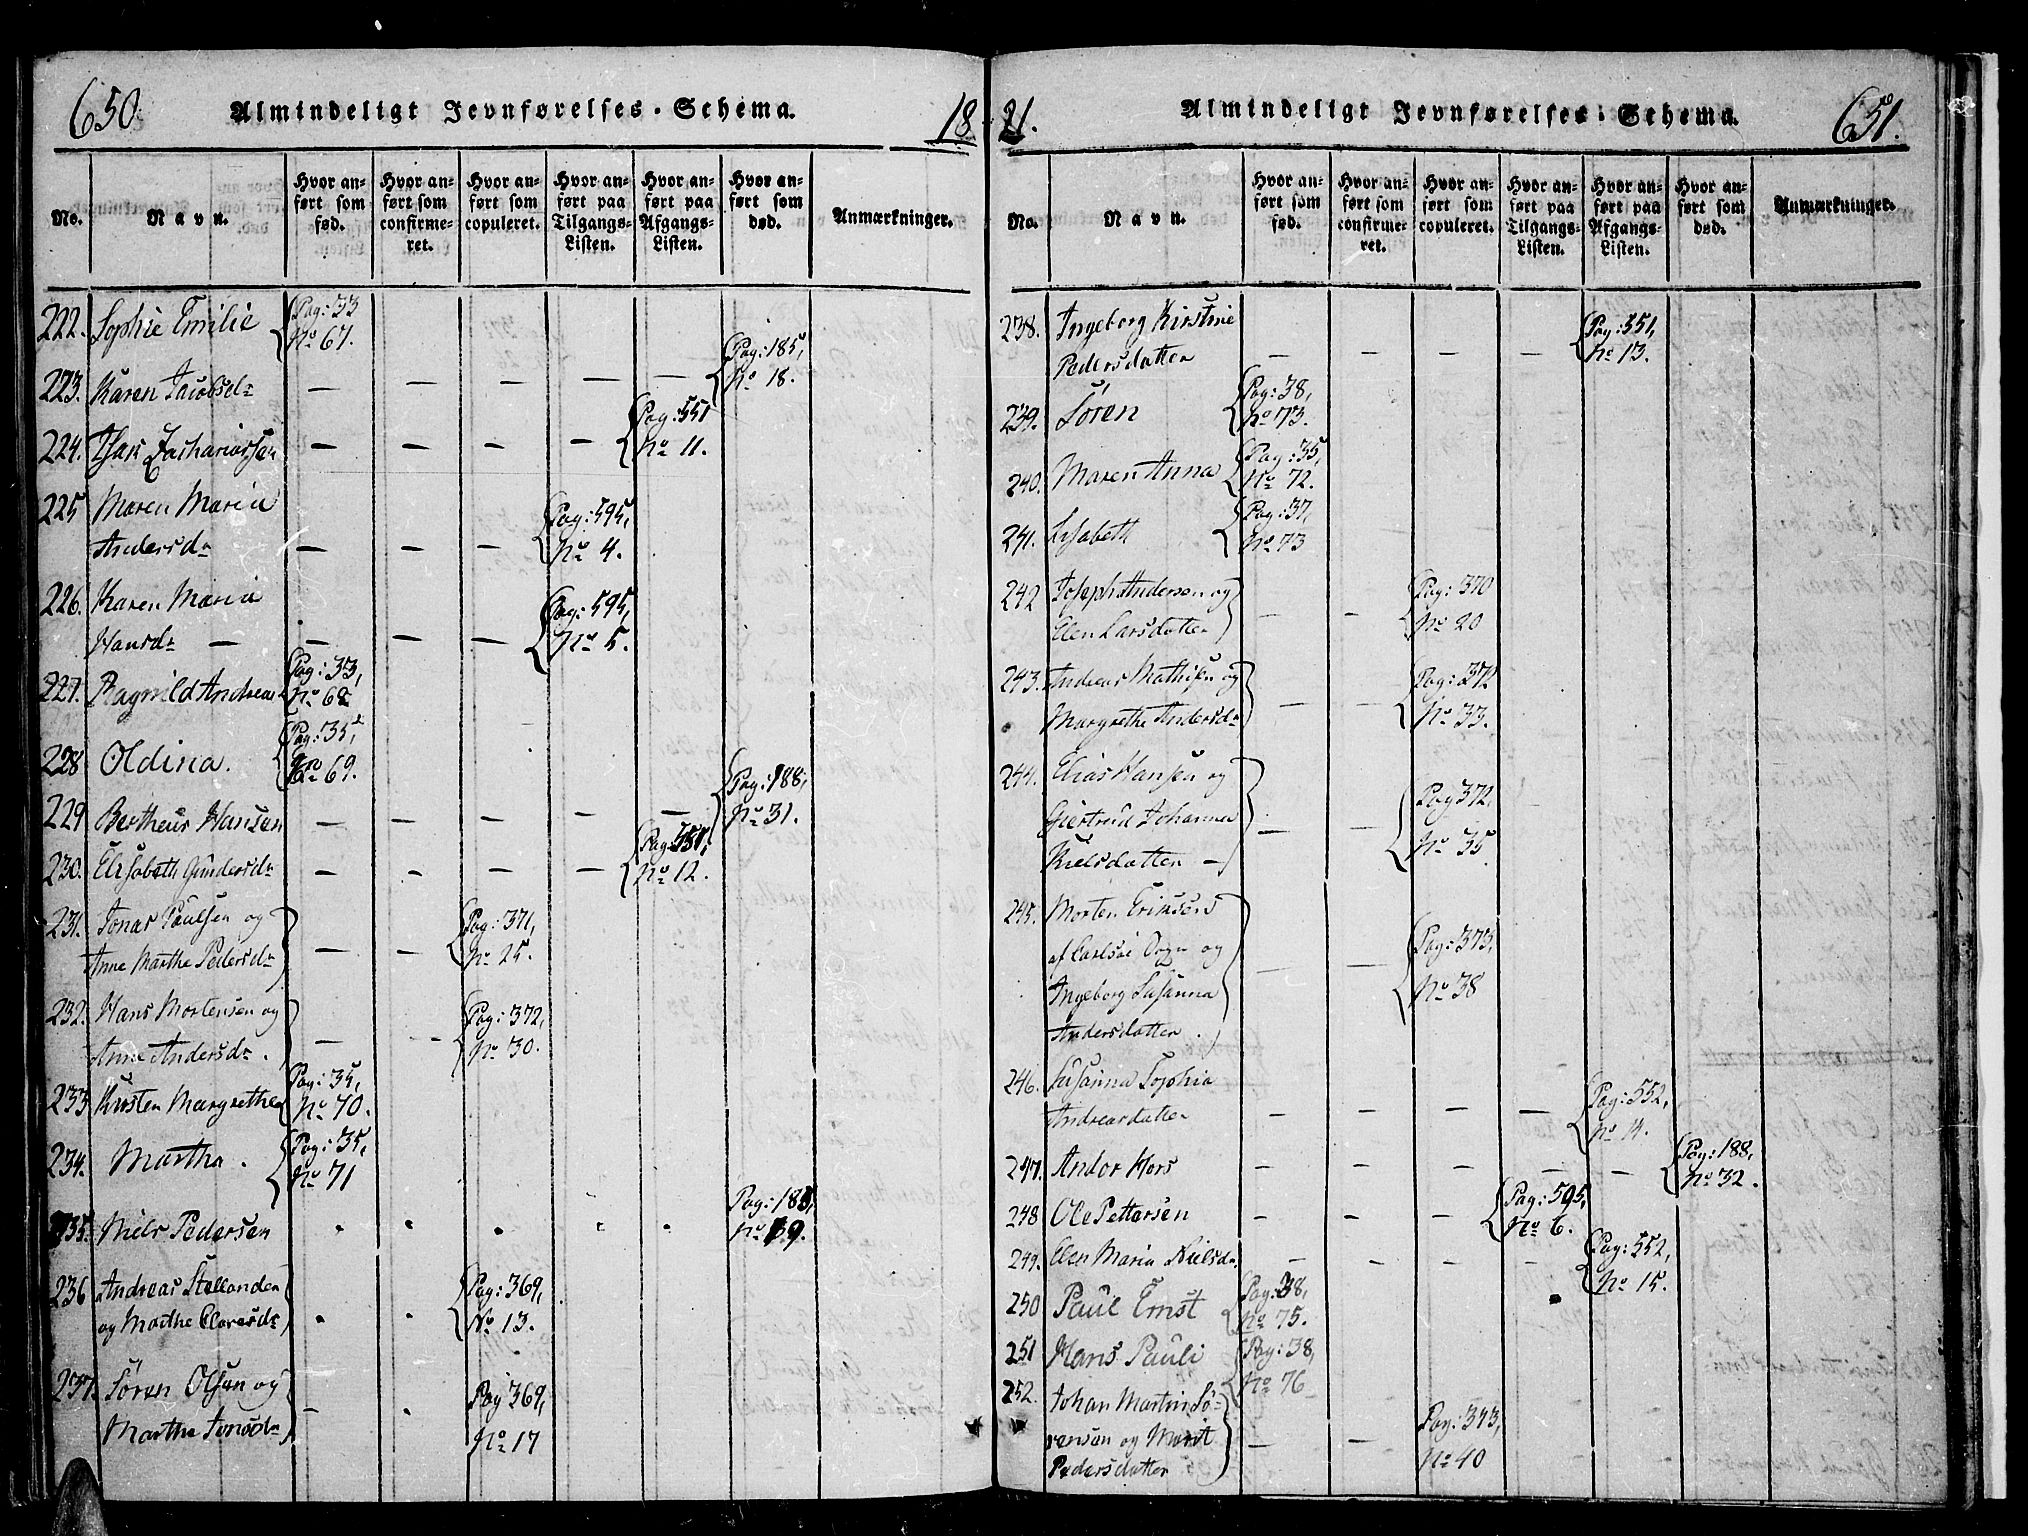 650. Almindeligt Jevnførelses-Schema. 18
No. Navn. Hvor anført som fød. Hvor anført som confirmeret. Hvor anført som copuleret. Hvor anført paa Tilgangs-Listen. Hvor anført paa Afgangs-Listen. Hvor anført som død. Anmærkninger.
222. Sophie Emilie Pag: 33 No 67.
223. Karen Jacobsdr — — — — — Pag: 185, No 18.
224. Isak Zachariassen — — — — Pag: 551 No 11.
225 Maren Maria
Andersdr — — — Pag: 595, No 4.
226. Karen Maria
Hansdr — — — — Pag: 595, No 5.
227. Ragnild Andrea Pag: 353, No 68
228 Oldina. Pag: 35, No 69.
229 Bertheus Hansen — — — — — Pag: 188, No 31.
230. Elisabeth Gundersdr — — — — Pag: 551, No 12.
231. Jonas Paulsen og
Anne Marthe Pedersdr — — Pag: 371, No 25.
232. Hans Mortensen og
Anne Andersdr. — — Pag: 372, No 30.
233 Kirsten Margrethe Pag: 35, No 70.
234. Martha. Pag: 35, No 71
235. Niels Pedersen Pag: 188, No 39.
236 Andreas
og Marthe Olavesdr Pag: 369, No 13.
237. Sören Olsen og
Marthe Jonsdr — Pag 369, No 17
21. Almindeligt Jevnførelses-Schema. 651.
No. Navn. Hvor anført som fød. Hvor anført som confirmeret. Hvor anført som copuleret. Hvor anført paa Tilgangs-Listen. Hvor anført paa Afgangs-Listen. Hvor anført som død. Anmærkninger.
238. Ingeborg Kirstine
Pedersdatter — — — — Pag: 551, No 13.
239. Sören Pag: 38, No 73.
240. Maren Anna Pag: 35, No 72.
241. Lisabeth Pag: 37, No 73
242 Joseph Andersen og
Elen Larsdatter — — Pag: 370 No 20
243. Andreas Mathisen og
Margrethe Andersdr — — Pag: 372 No 33.
244. Elias Hansen og
Giertrud Johanna
Nielsdatter — — — Pag 372, No 35
245. Morten Eriksen
af Carlsöe Sogn og
Ingeborg Susanna
Andersdatter. — — Pag: 373, No 38
246. Susanna Sophia
Andreasdatter — — — — Pag: 552, No 14.
247. Andor Hors — — — — — Pag: 188, No 32.
248 Ole Pettersen — — — Pag: 595, No 6.
249. Elen Maria Nielsdr. — — — Pag: 552, No 15.
250 Paul Ernst Pag: 38, No 75.
251 Hans Pauli Pag: 38, No 76
252. Johan Martin Sö-
rensen og Marit
Pedersdatter — — Pag: 373, No 40